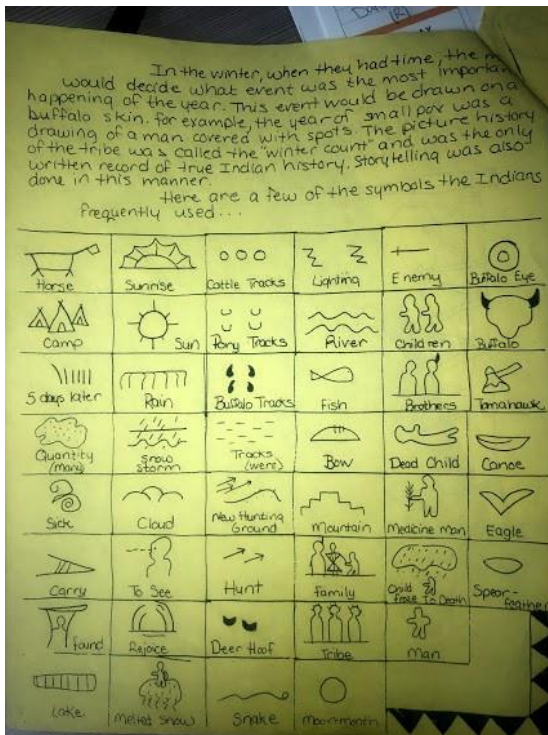 In the winter, when they had time, the
would decide what event was the most important
happening of the year. This event would be drawn on a
buffalo skin. For example, the year of small pox was a
drawing of a man covered with spots. The picture history
of the tribe was called the "winter count" and was the only
written record of true Indian history. Storytelling was also
done in this manner.
Here are a few of the symbols the Indians
frequently used...
Horse Sunrise Cattle Tracks Lighting Enemy Buffalo Eye
Camp Sun Pony Tracks River Children Buffalo
5 days later Rain Buffalo Tracks Fish Brothers Tomahawk
Quantity (many) Snow storm Tracks (went) Bow Dead Child Canoe
Sick Cloud New Hunting Ground Mountain Medicine Man Eagle
Carry To See Hunt Family Child Froze To Death Spear-feather
found Rejoice Deer Hoof Tribe Man
Lake Melted Snow Snake Moon-month